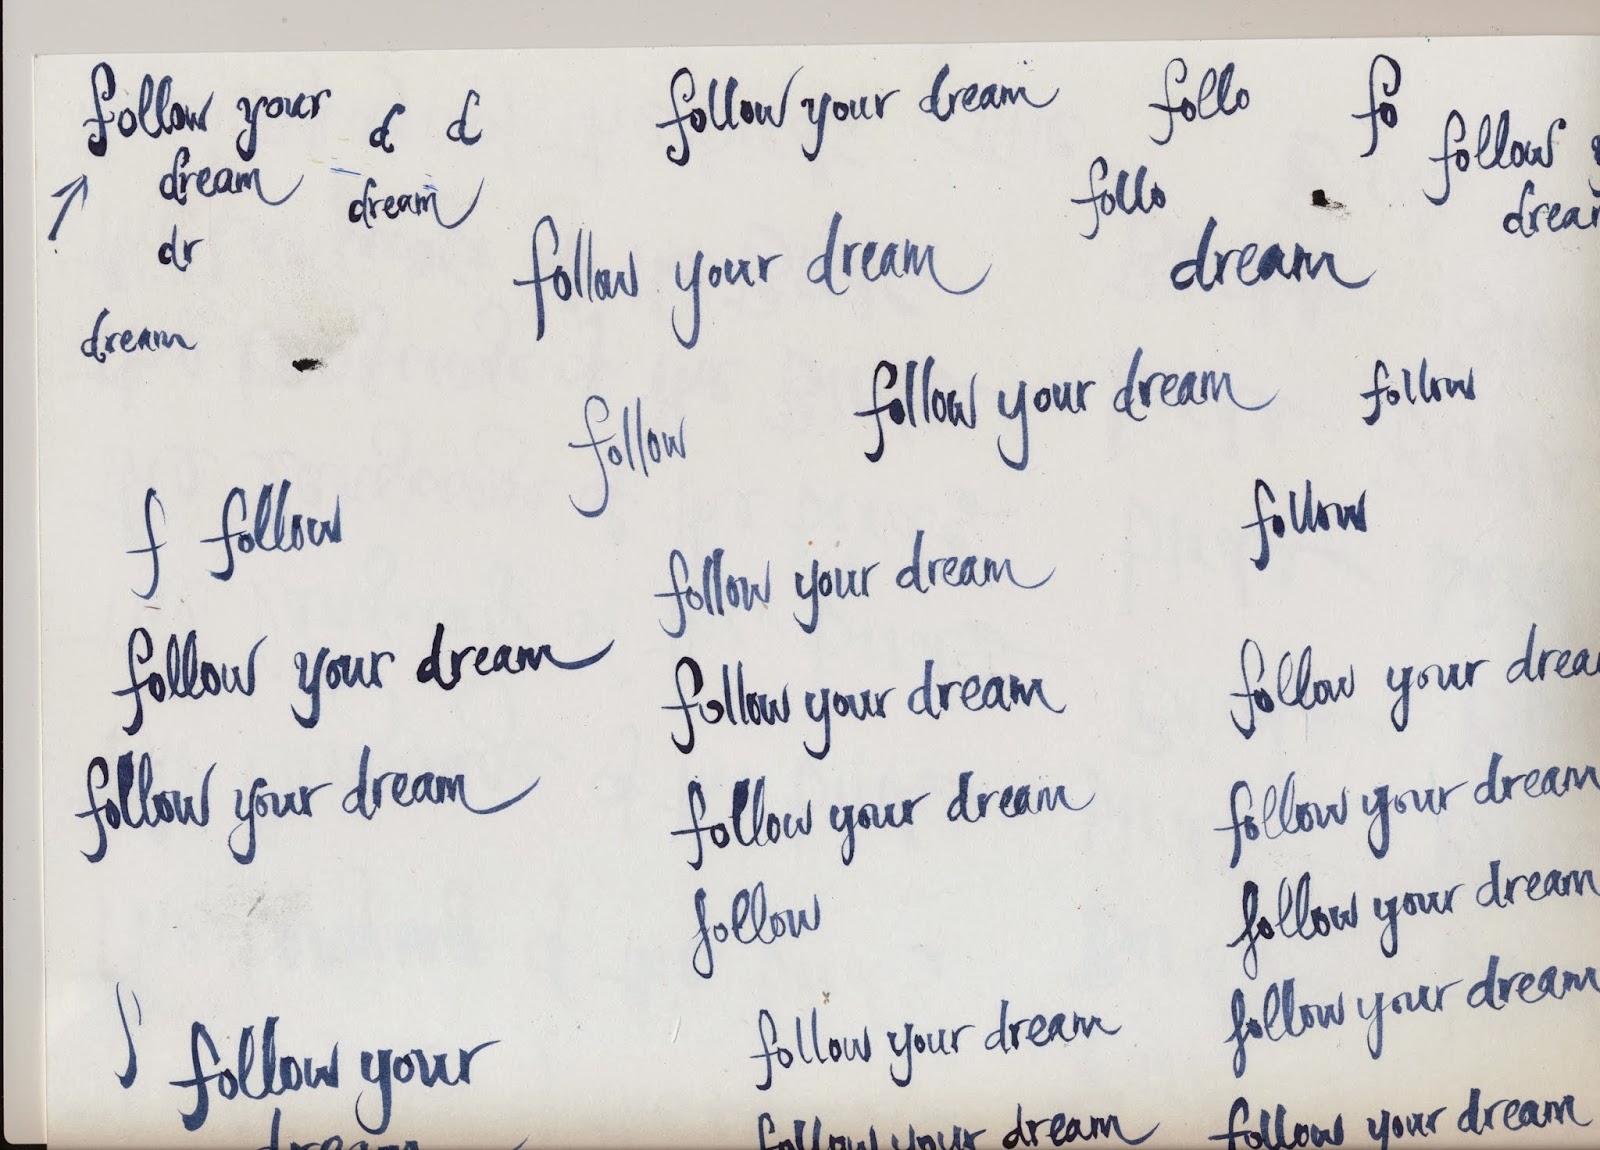 follow your
dream
dr
dream
d d
dream
follow your dream
follo
fo
follo
follow
drea
follow your dream
dream
follow
follow your dream
follow
f follow
follow
follow your dream
follow your dream
follow your dream
follow your drea
follow your dream
follow your dream
follow your dream
follow
follow your dream
follow your
dream
follow your dream
follow your dream
follow your dream
follow your dream